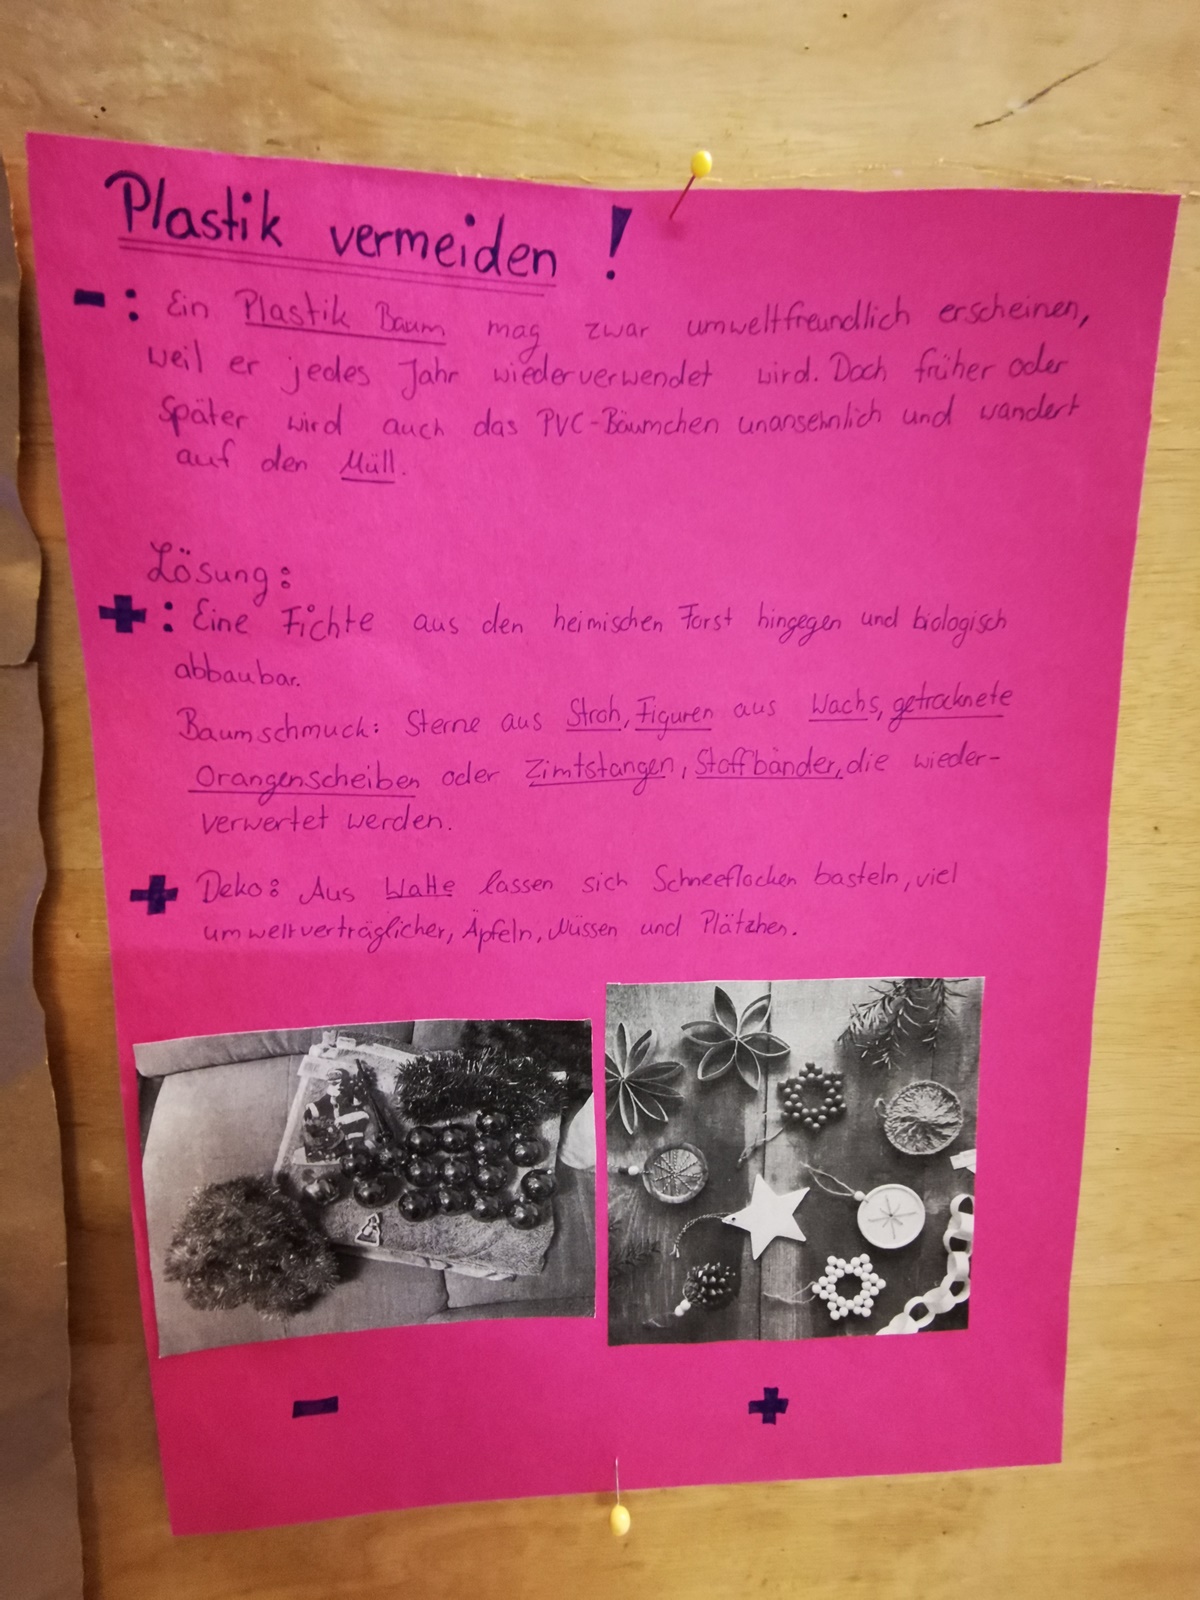 Plastik vermeiden !
- : Ein Plastik Baum mag zwar umweltfreundlich erscheinen,
weil er jedes Jahr wiederverwendet wird. Doch früher oder
später wird auch das PVC-Bäumchen unansehnlich und wandert
auf den Müll.
Lösung:
+ : Eine Fichte aus den heimischen Forst hingegen und biologisch
abbaubar.
Baumschmuck: Sterne aus Stroh, Figuren aus Wachs, getrocknete
Orangenscheiben oder Zimtstangen, Stoffbänder, die wieder-
verwertet werden.
+ Deko: Aus Watte lassen sich Schneeflocken basteln, viel
umweltverträglicher, Äpfeln, Nüssen und Plätzchen.
- +